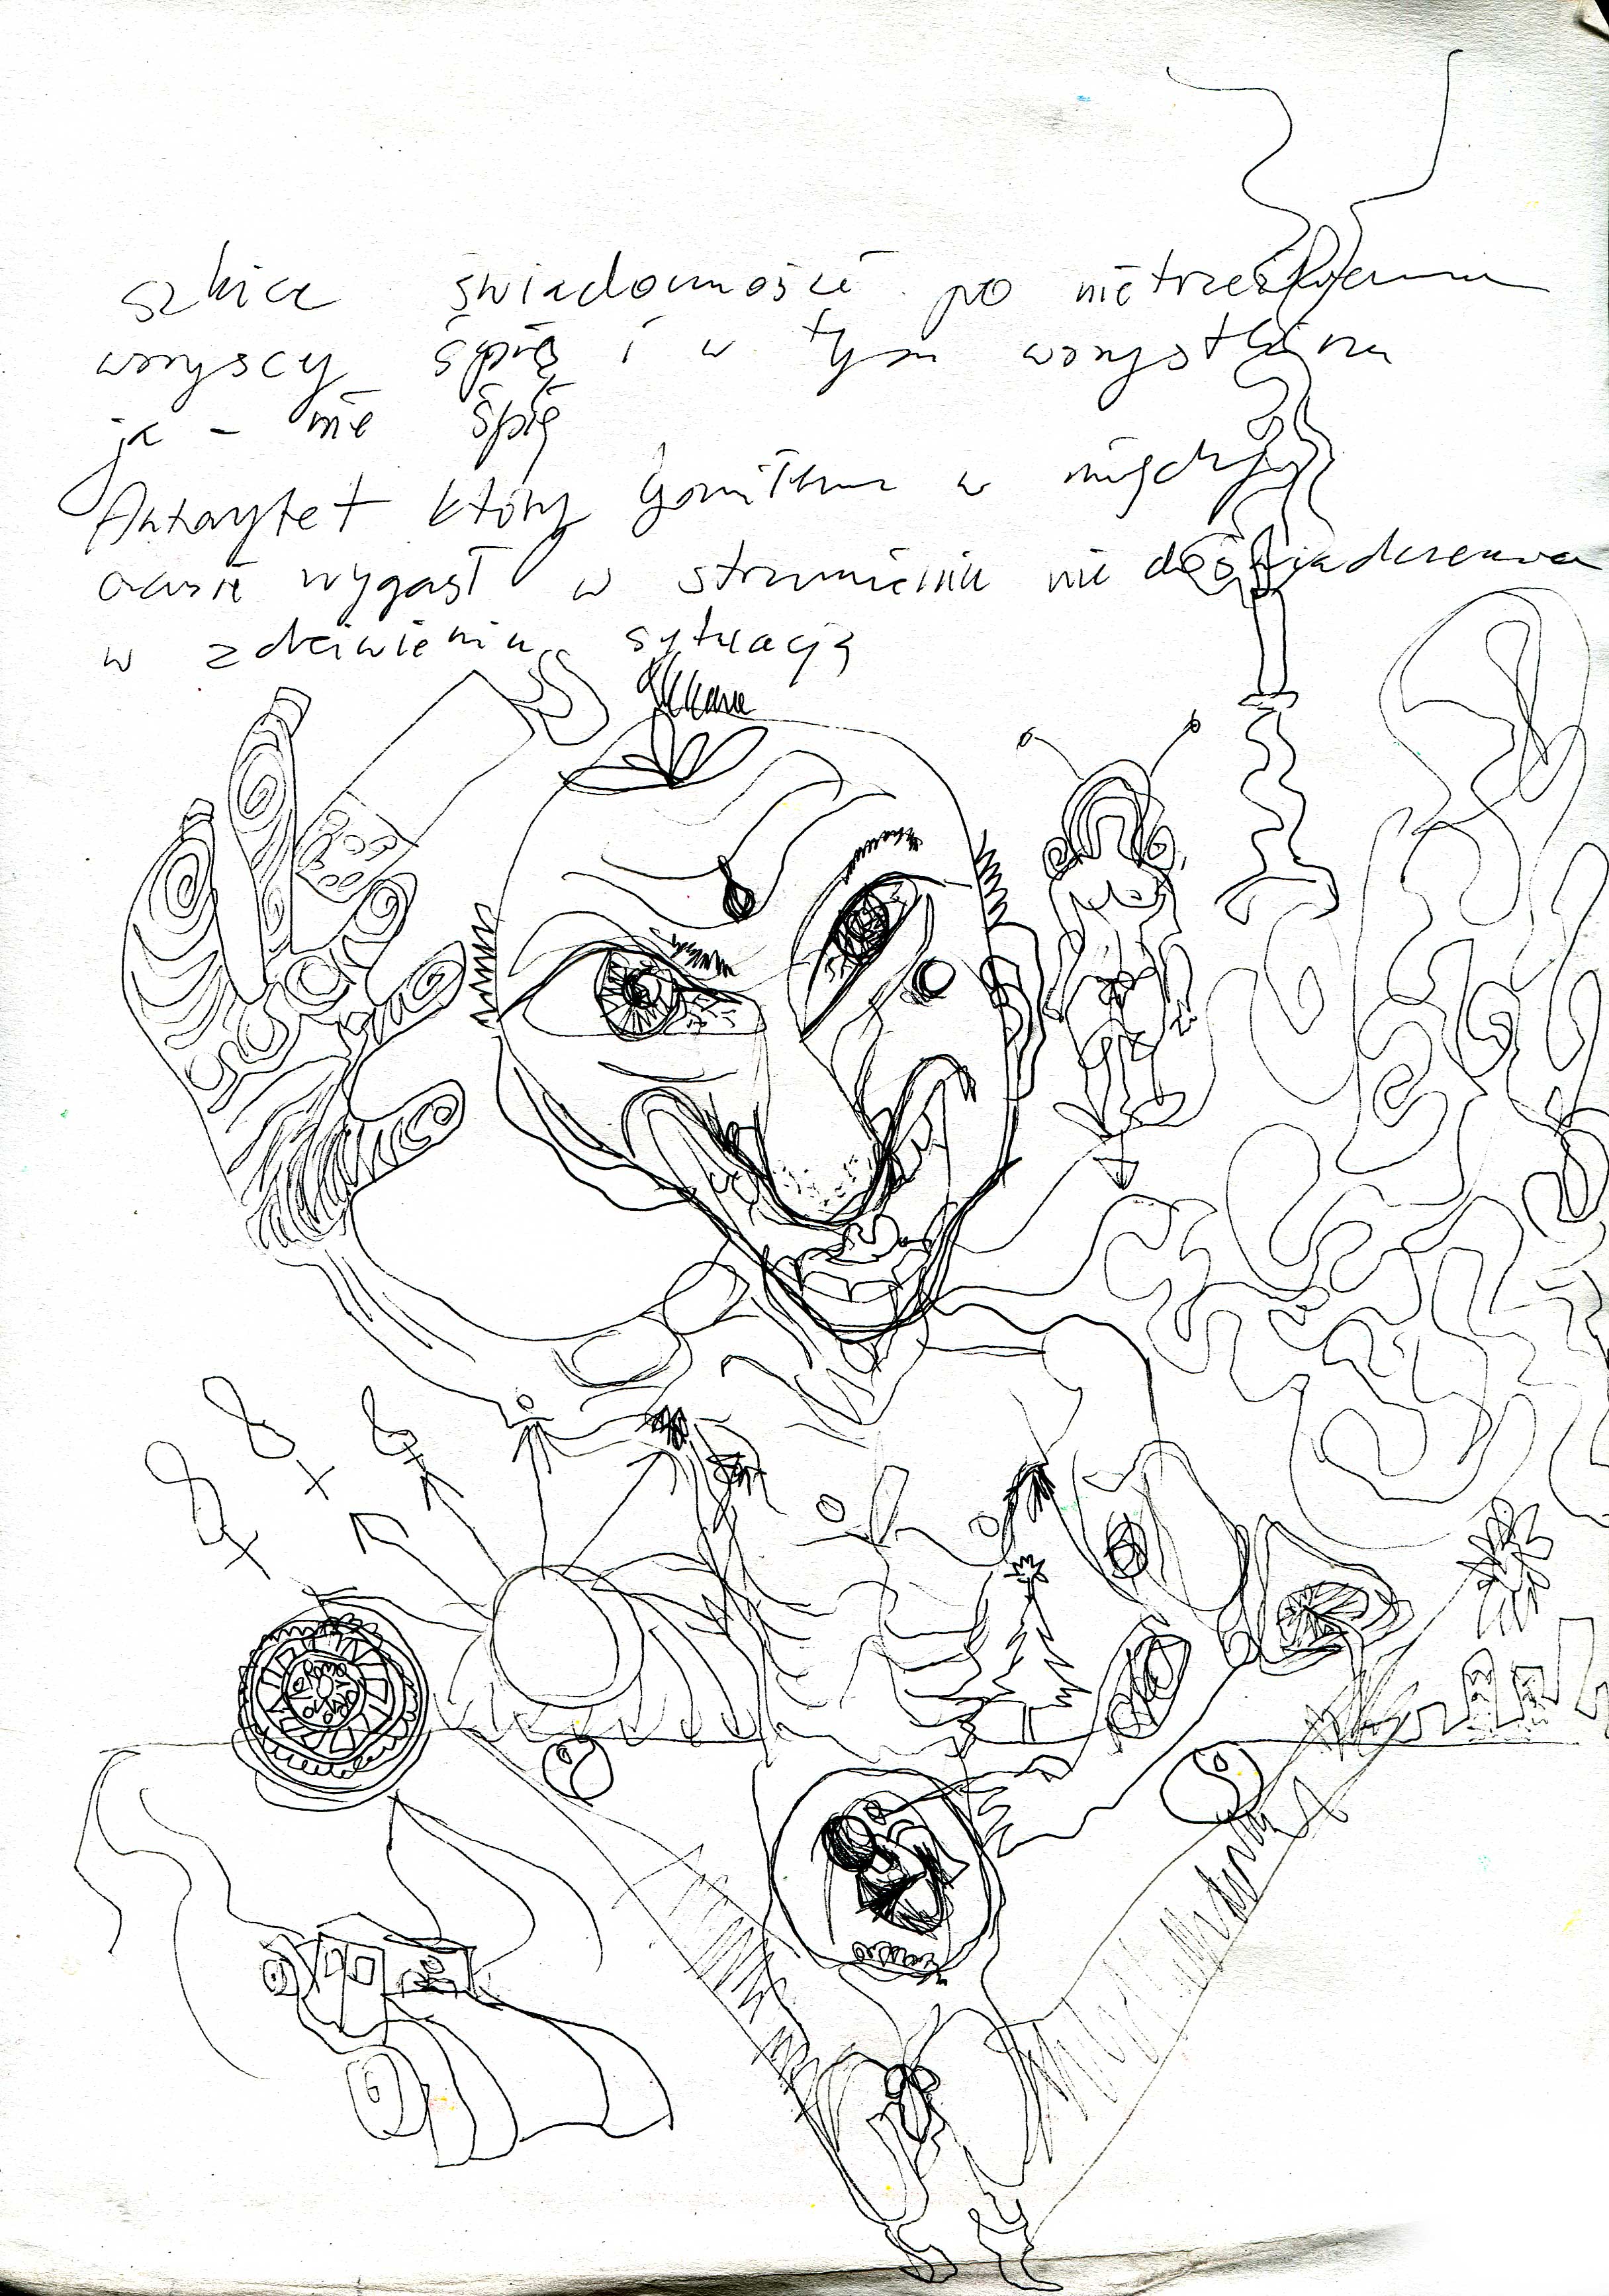 szkice świadomości po nietrzeźwemu
wszyscy śpią i w tym wszystkim
ja - nie śpię
Autorytet który goniłem w między
czasie wygasł w strumieniu nie doświadczenia
w zdziwieniu sytuacją